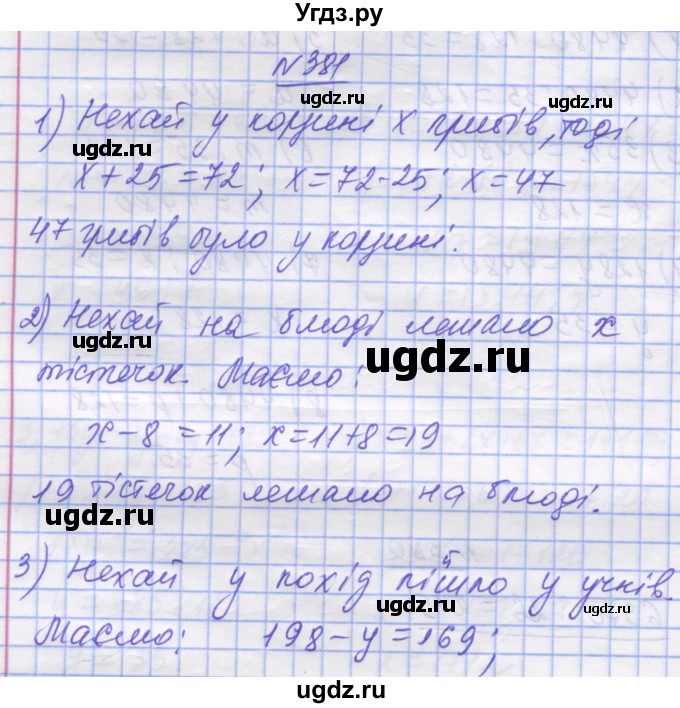 Угдз.ру
N 381
ugdz.ru
1) Нехай у корзині x грибів, тоді
ugdz.ru ugdz.ru
x+25=72; x=72-25; x=47
47 грибів було у корзині.
2) Нехай на блюді лежало x
ugdz.ru ugdz.ru
тістечок. Маємо:
x-8=11; x=11+8=19
19 тістечок лежало на блюді.
ugdz.ru ugdz.ru
3) Нехай у похід пішло y учнів.
ugdz.ru ugdz.ru
Маємо: 198-y=169;
ugdz.ru